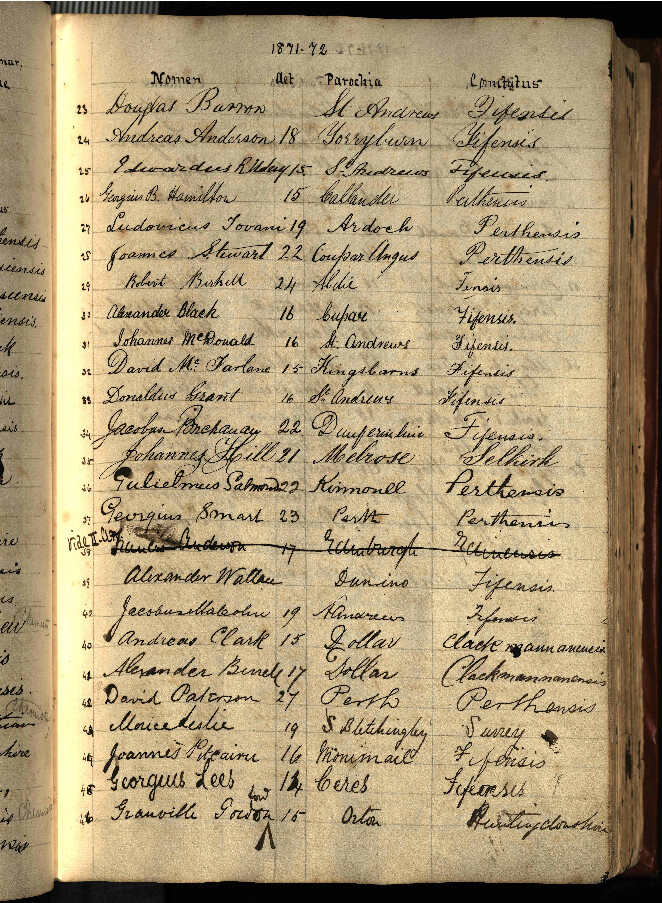 1871-72
Nomen Aet Parochia Comitatus
23 Douglas Barron St Andrews Fifensis
24 Andreas Anderson 18 Torryburn Fifensis
25 Edwardus R 15 St Andrews Fifensis.
26 Georgius B. Hamilton 15 Callander Perthensis
27 Ludovicus Iovani 19 Ardoch Perthensis
28 Joannes Stewart 22 Coupar Angus Perthensis
29 Robert Birkell 24 Aldie
Alexander Black 18 Cupar Fifensis.
31 Johannes McDonald 16 St. Andrews Fifensis.
32 David Mc Farlane 15 Kingsbarns Fifensis
33 Donaldus Grant 16 St Andrews Fifensis
34 Jacobus Buchanan 22 Dunfermline Fifensis.
35 Johannes Hill 21 Melrose Selkirk
36 Gulielmus Salmond 22 Kinnoull Perthensis
37 Georgius Smart 23 Perth Perthensis
Vide II. Anderson 17 Edinburgh Edinensis
39 Alexander Wallace Dunino Fifensis
Jacobus Malcolm 19 St Andrews Fifensis
40 Andreas Clark 15 Dollar Clackmannanensis
41 Alexander 17 Dollar Clackmannanensis
42 David Paterson 27 Perth Perthensis
Leslie 19 S Bletchingley Surrey
44 Joannes Pitcairn 16 Monimail Fifensis
45 Georgius Lees 14 Ceres Fifensis
Lord
46 Granville Gordon 15 Orton Huntingdonshire